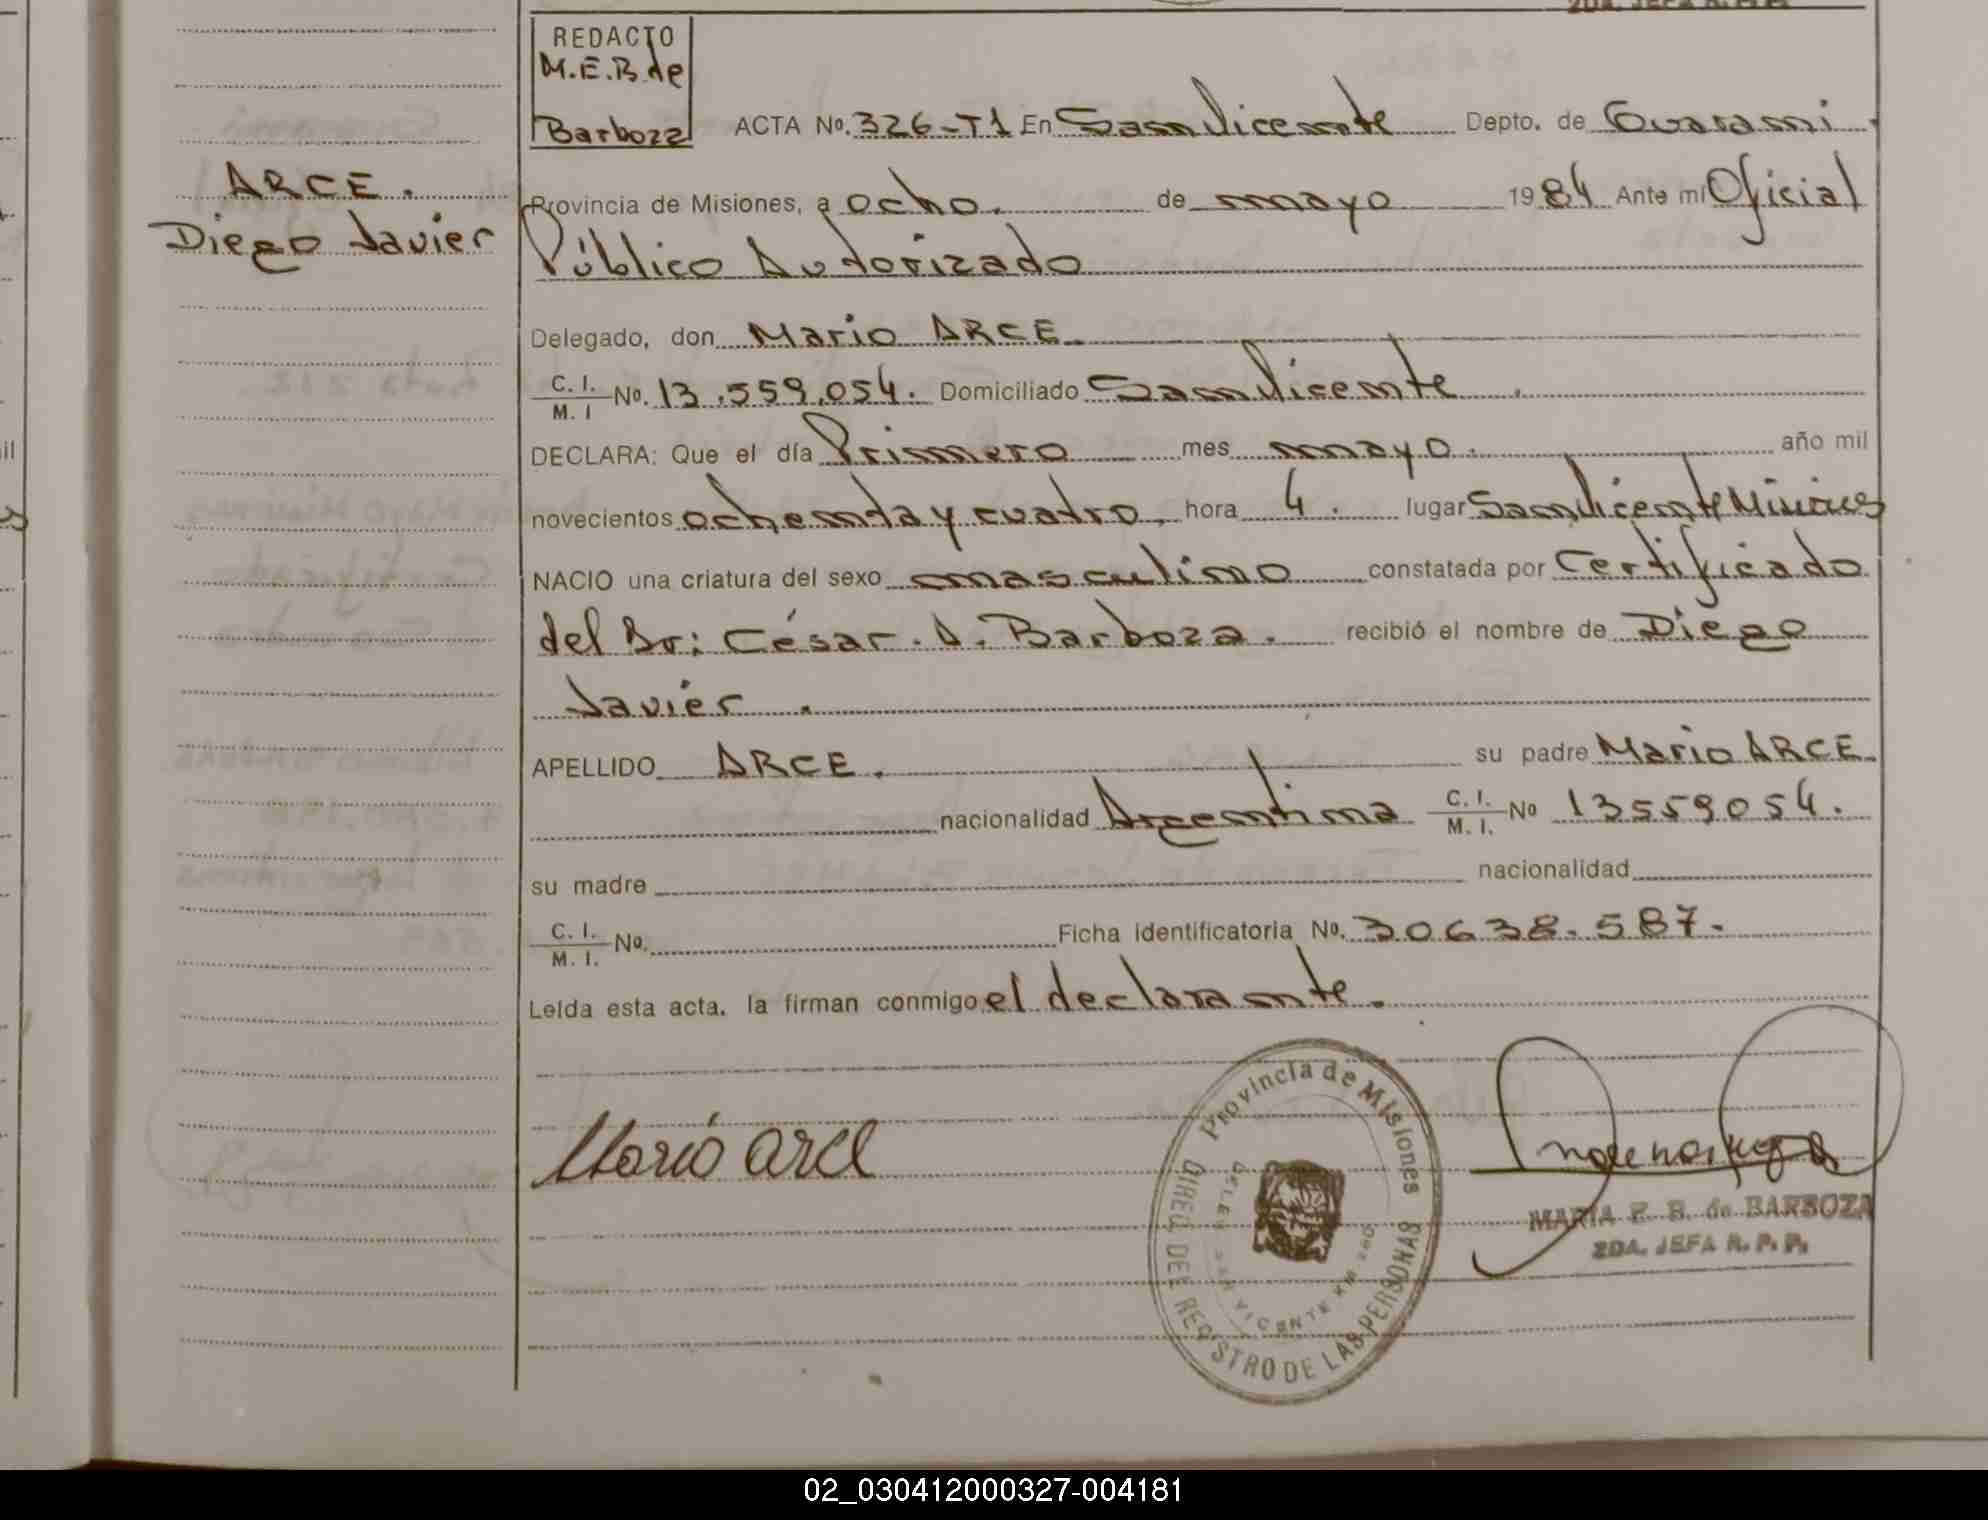 2DA. JEFA R. P. P.
REDACTO
M.E.B. de
Barboza
ACTA No. 326-T1 En San Vicente Depto. de Guarani
ARCE.
Diego Javier
Provincia de Misiones, a ocho. de mayo 1984 Ante mí Oficial
Público Autorizado
Delegado, don Mario ARCE.
C. I.
M. I No. 13.559.054. Domiciliado San Vicente.
DECLARA: Que el día Primero mes mayo. año mil
novecientos ochenta y cuatro, hora 4. lugar San Vicente Misiones
NACIO una criatura del sexo masculino constatada por Certificado
del Dr: César. A. Barboza. recibió el nombre de Diego
Javier.
APELLIDO ARCE. su padre Mario ARCE.
nacionalidad Argentina C. I. M. I. No 13559054.
su madre nacionalidad
C. I.
M. I. No. Ficha identificatoria No. 30638.587.
Leída esta acta, la firman conmigo el declarante.
Mario Arce
Provincia de Misiones
DIREC. DEL REGISTRO DE LAS PERSONAS
MARIA E. B. de BARBOZA
2DA. JEFA R. P. P.
02_030412000327-004181